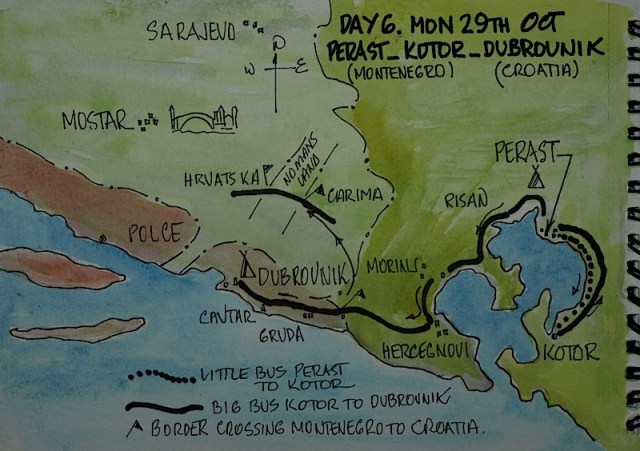 DAY 6. MON 29TH OCT
PERAST_KOTOR_DUBROVNIK
(MONTENEGRO) (CROATIA)
SARAJEVO
W E
MOSTAR
PERAST
NO MANS
LAND
HRVATSKA
CARIMA
RISAN
POLCE
DUBROVNIK
MORINS
CAVTAR
GRUDA
HERCEGNOVI
KOTOR
LITTLE BUS PERAST
TO KOTOR
BIG BUS KOTOR TO DUBROVNIK
BORDER CROSSING MONTENEGRO TO CROATIA.